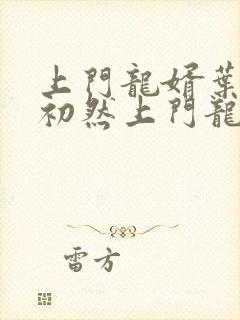 上門龍婿葉
初然上門龍
雷方